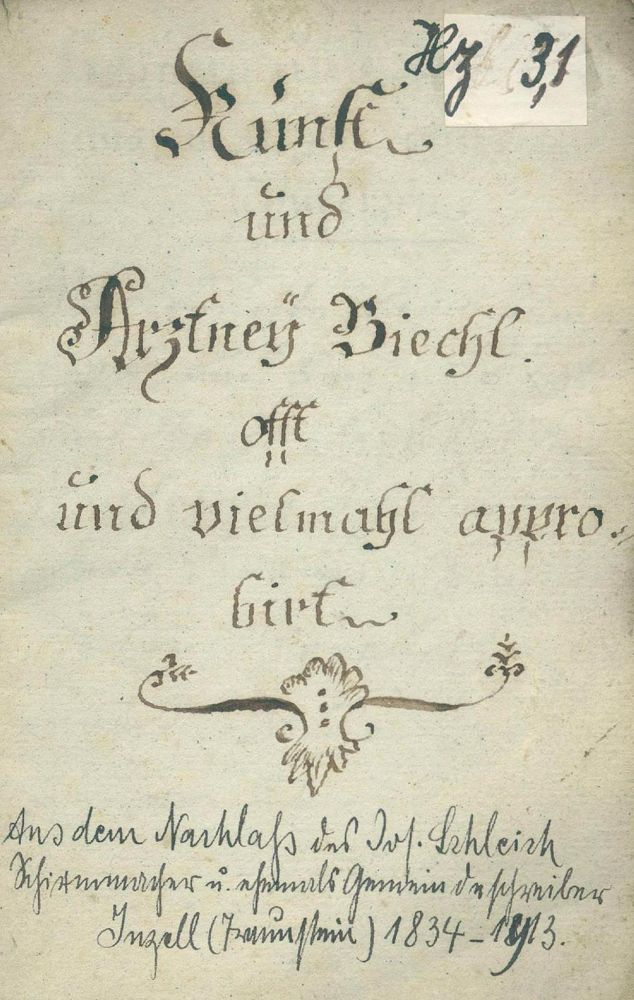 Hz 3,1
Künst
und
Arztneÿ Biechl.
offt
und vielmahl appro-
birt
Aus dem Nachlaß des Jos. Schleich
Schirmmacher u. ehemals Gemeindeschreiber
Inzell (Traunstein) 1834-1913.